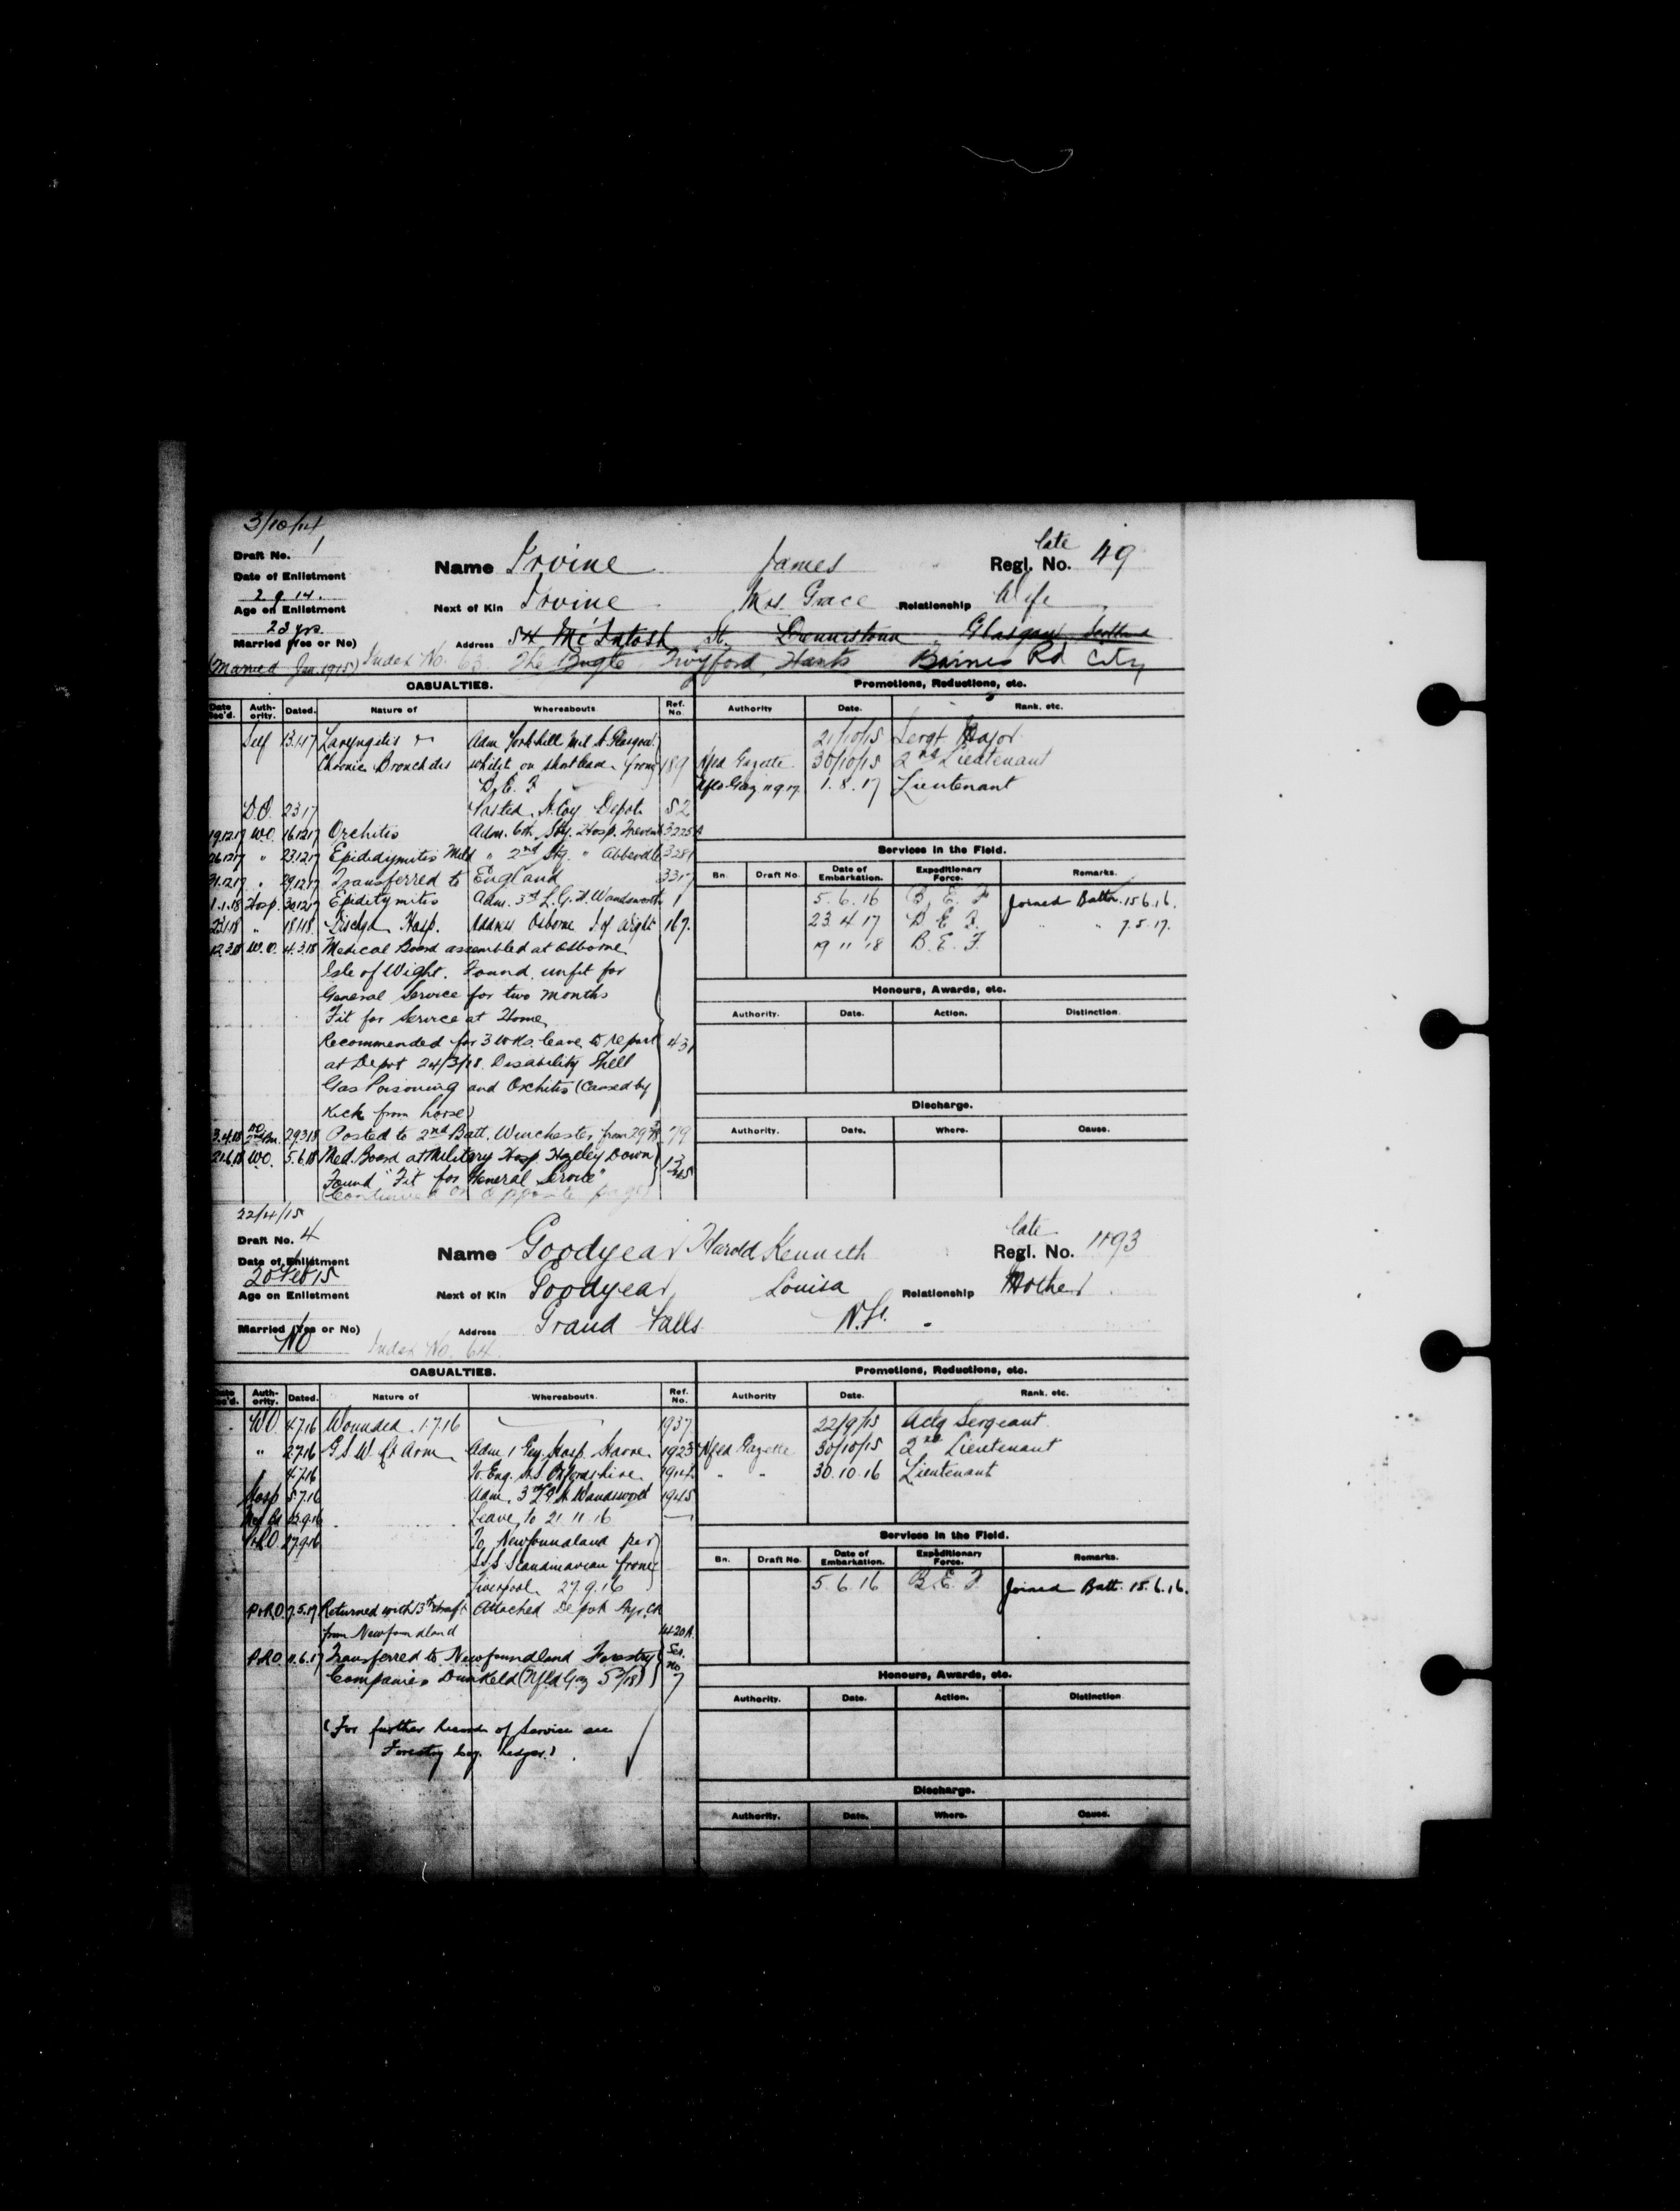 3/10/14
Draft No. 1
Date of Enlistment
2.9.14.
Age on Enlistment
23 yrs.
Married (Yes or No)
(Married Jan. 1915) Index No. 63.
Name Irvine James late Regl. No. 49
Next of Kin Irvine Mrs. Grace Relationship Wife
Address 54 McIntosh St. Dennistoun, Glasgow, Scotland
The Bugle, Twyford, Hants Barnes Rd City
CASUALTIES.
Date Rec'd. Authority. Dated. Nature of Whereabouts. Ref. No.
Self 13.1.17 Laryngitis & Adm Yorkhill Mil H. Glasgow
Chronic Bronchitis whilst on short leave from 189
B.E.F.
D.O. 2 3 17 Posted H. Coy Depot 52
19.12.17 W.O. 16.12.17 Orchitis Adm. 6th Sty. Hosp. Frevent 3225
26.12.17 " 23.12.17 Epididymitis Mild " 2nd Sty. " Abbeville 3281
31.12.17 " 29.12.17 Transferred to England 3317
1.1.18 Hosp. 30.12.17 Epiditymitis Adm. 3rd L.G.H. Wandsworth 1
23.1.18 " 18.1.18. Dischgd Hosp. Address Osborne I. of Wight 167.
12.3.18 W.O. 4.3.18 Medical Board assembled at Osborne
Isle of Wight. Found unfit for
General Service for two months
Fit for Service at Home,
Recommended for 3 wks. leave to report 431
at Depot 24/3/18. Disability Shell
Gas Poisoning and Orchitis (Caused by
Kick from horse)
3.4.18 29.3.18 Posted to 2nd Batt. Winchester from 29 79
21.6.18 W.O. 5.6.18 Med. Board at Military Hosp Hazeley Down
Found "Fit for General Service"
(Continued on opposite page)
Promotions, Reductions, etc.
Authority Date. Rank, etc.
21/10/15 Sergt. Major
Nfld Gazette 30/10/15 2nd Lieutenant
Nfld Gaz 11 9 17. 1.8.17 Lieutenant
Services in the Field.
Bn. Draft No. Date of Embarkation. Expeditionary Force. Remarks.
5.6.16 B.E.F Joined Battn. 15.6.16.
23 4 17 B E F. " " 7.5.17.
19 11 18 B.E.F.
Honours, Awards, etc.
Authority. Date. Action. Distinction.
Discharge.
Authority. Date. Where. Cause.
22/4/15
Draft No. 4
Date of Enlistment
20 Feb 15
Age on Enlistment
Married (Yes or No)
No
Index No. 64.
Name Goodyear Harold Kenneth late Regl. No. 1193
Next of Kin Goodyear Louisa Relationship Mother
Address Grand Falls N.F.
CASUALTIES.
Date Rec'd. Authority. Dated. Nature of Whereabouts. Ref. No.
W.O. 4.7.16 Wounded. 1.7.16 1937
" 2.7.16 G.S.W. Rt Arm Adm 1 Gen. Hosp. Havre 1923
4.7.16 To. Eng. H.S. Oxfordshire
Hosp 5.7.16 Adm. 3rd L.G.H. Wandsworth 1945
Leave to 21.11.16
P.&R.O. 27.9.16 To Newfoundland per
S.S. Scandinavian from
Liverpool. 27.9.16
P&RO. 7.5.17 Returned with 13th draft Attached Depot Ayr.
from Newfoundland
P.R.O. 11.6.17 Transferred to Newfoundland Forestry Ser. No 7
Companies Dunkeld (Nfld Gaz 5/2/18)
(For further Record of Service see
Forestry Coy. Ledger.)
Promotions, Reductions, etc.
Authority Date. Rank, etc.
22/9/15 Actg Sergeant.
Nfld Gazette 30/10/15 2nd Lieutenant
" " 30.10.16 Lieutenant
Services in the Field.
Bn. Draft No. Date of Embarkation. Expeditionary Force. Remarks.
5.6.16 B.E.F. Joined Batt. 15.6.16.
Honours, Awards, etc.
Authority. Date. Action. Distinction
Discharge.
Authority. Date. Where. Cause.